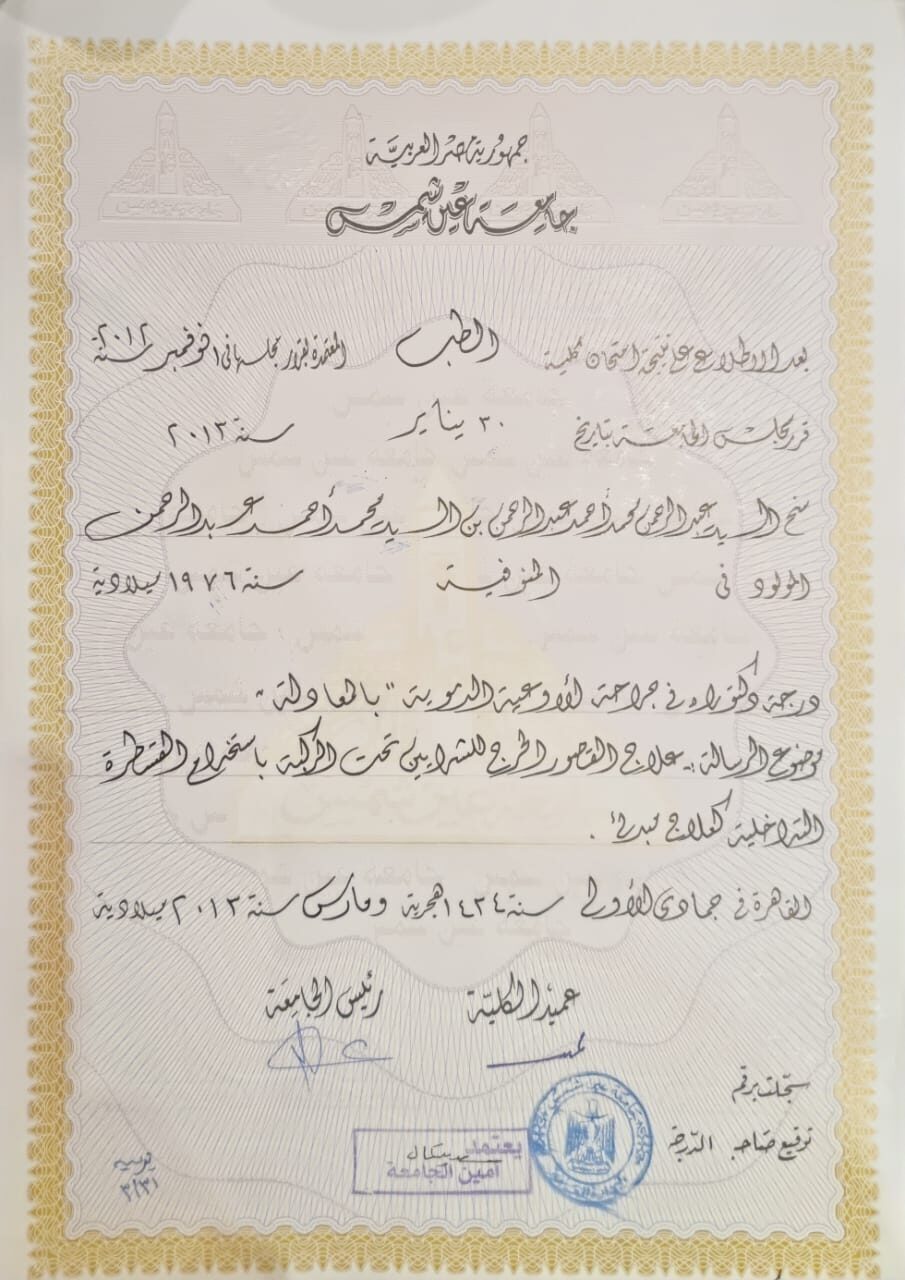 جمهورية مصر العربية
جامعة عين شمس
بعد الاطلاع على نتيجة امتحان كلية الطب المعتمدة بقرار مجلسها فى ١ نوفمبر سنة ٢٠١٢
قرر مجلس الجامعة بتاريخ ٣٠ يناير سنة ٢٠١٣
منح السيد عبدالرحمن محمد أحمد عبدالرحمن بن السيد محمد أحمد عبدالرحمن
المولود فى المنوفية سنة ١٩٧٦ ميلادية
درجة دكتوراه فى جراحة الأوعية الدموية "بالمعادلة"
موضوع الرسالة :- علاج القصور الحرج للشرايين تحت الركبة باستخدام القسطرة
التداخلية كعلاج مبدئ .
القاهرة فى جمادى الأولى سنة ١٤٣٤ هجرية ومارس سنة ٢٠١٣ ميلادية
عميد الكلية رئيس الجامعة
سجلت برقم
توقيع صاحب الدرجة
يعتمد
أمين الجامعة
٣/٣١